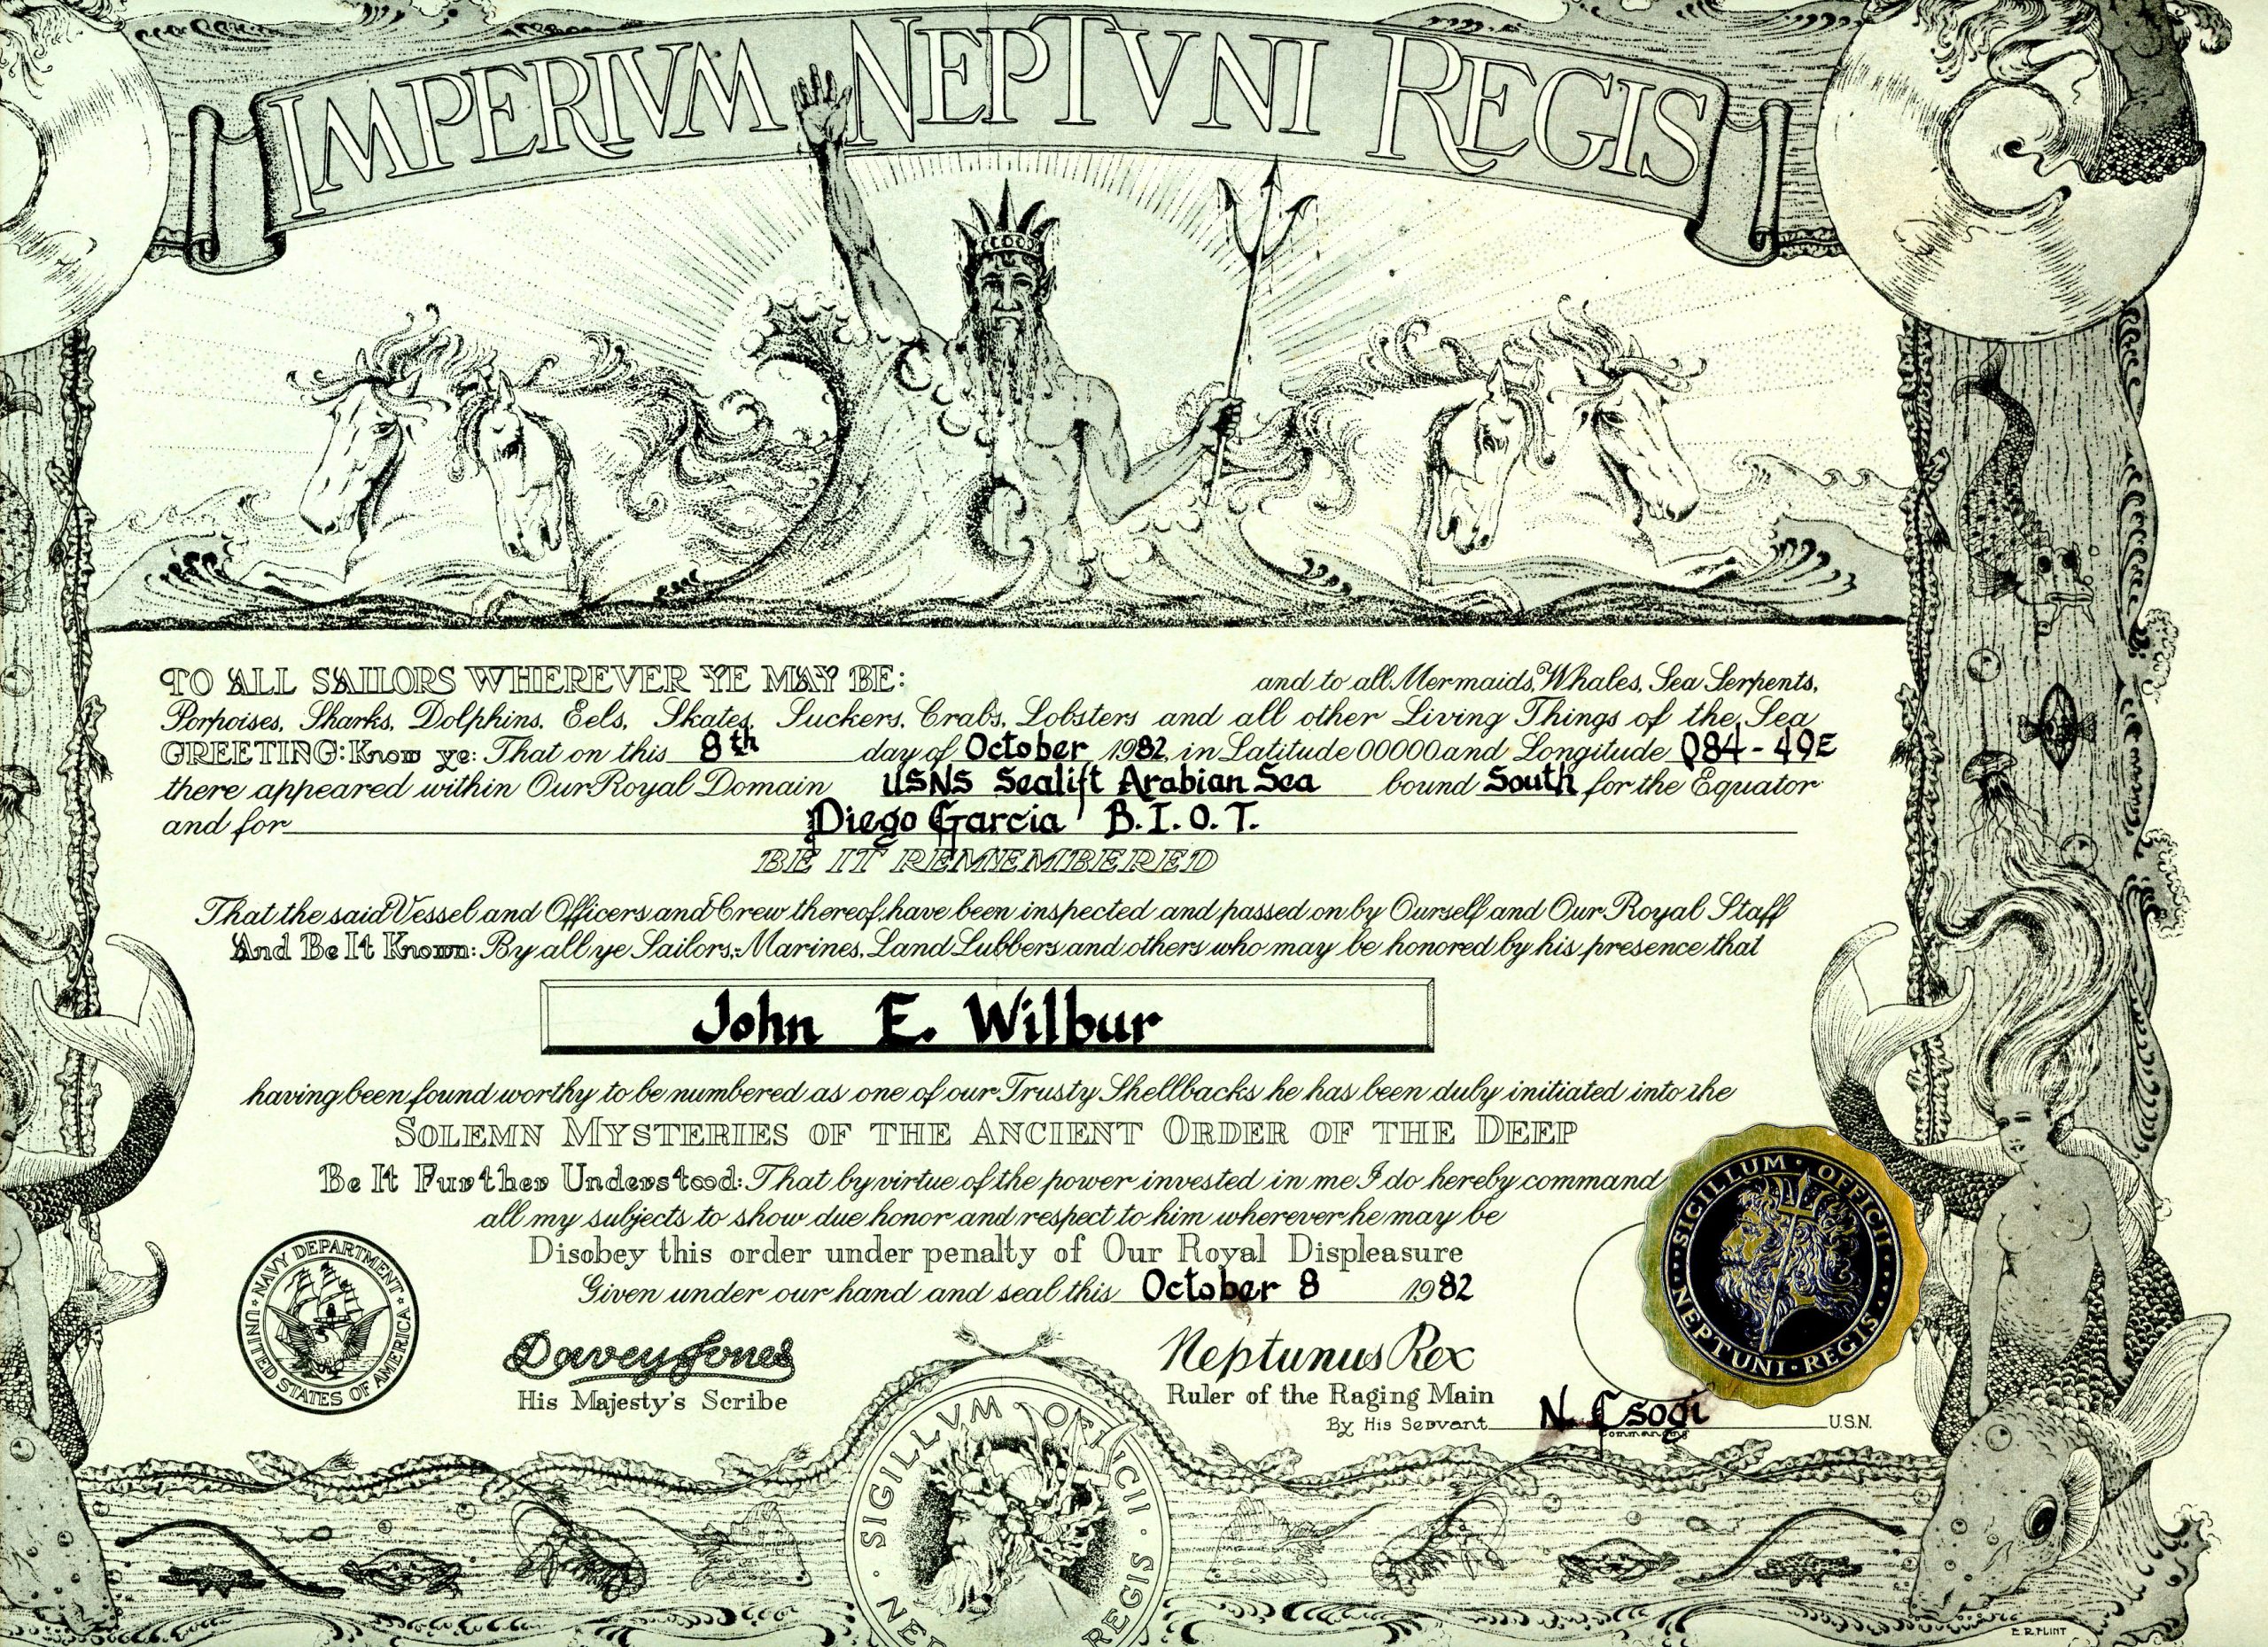 IMPERIVM NEPTVNI REGIS
TO ALL SAILORS WHEREVER YE MAY BE: and to all Mermaids, Whales, Sea Serpents,
Porpoises, Sharks, Dolphins, Eels, Skates, Suckers, Crabs, Lobsters and all other Living Things of the Sea
GREETING: Know ye: That on this 8th day of October 1982, in Latitude 00000 and Longitude 084-49E
there appeared within Our Royal Domain USNS Sealift Arabian Sea bound South for the Equator
and for Diego Garcia B.I.O.T.
BE IT REMEMBERED
That the said Vessel and Officers and Crew thereof, have been inspected and passed on by Ourself and Our Royal Staff
And Be It Known: By all ye Sailors, Marines, Land Lubbers and others who may be honored by his presence that
John E. Wilbur
having been found worthy to be numbered as one of our Trusty Shellbacks he has been duly initiated into the
SOLEMN MYSTERIES OF THE ANCIENT ORDER OF THE DEEP
Be It Further Understood: That by virtue of the power invested in me I do hereby command
all my subjects to show due honor and respect to him wherever he may be
Disobey this order under penalty of Our Royal Displeasure
Given under our hand and seal this October 8 1982
NAVY DEPARTMENT
UNITED STATES OF AMERICA
Davey Jones
His Majesty's Scribe
Neptunus Rex
Ruler of the Raging Main
By His Servant N. Csogi U.S.N.
Commanding
SIGILLUM · OFFICII
NEPTUNI · REGIS
SIGILLVM OFFICII
NEP REGIS
E.R. FLINT